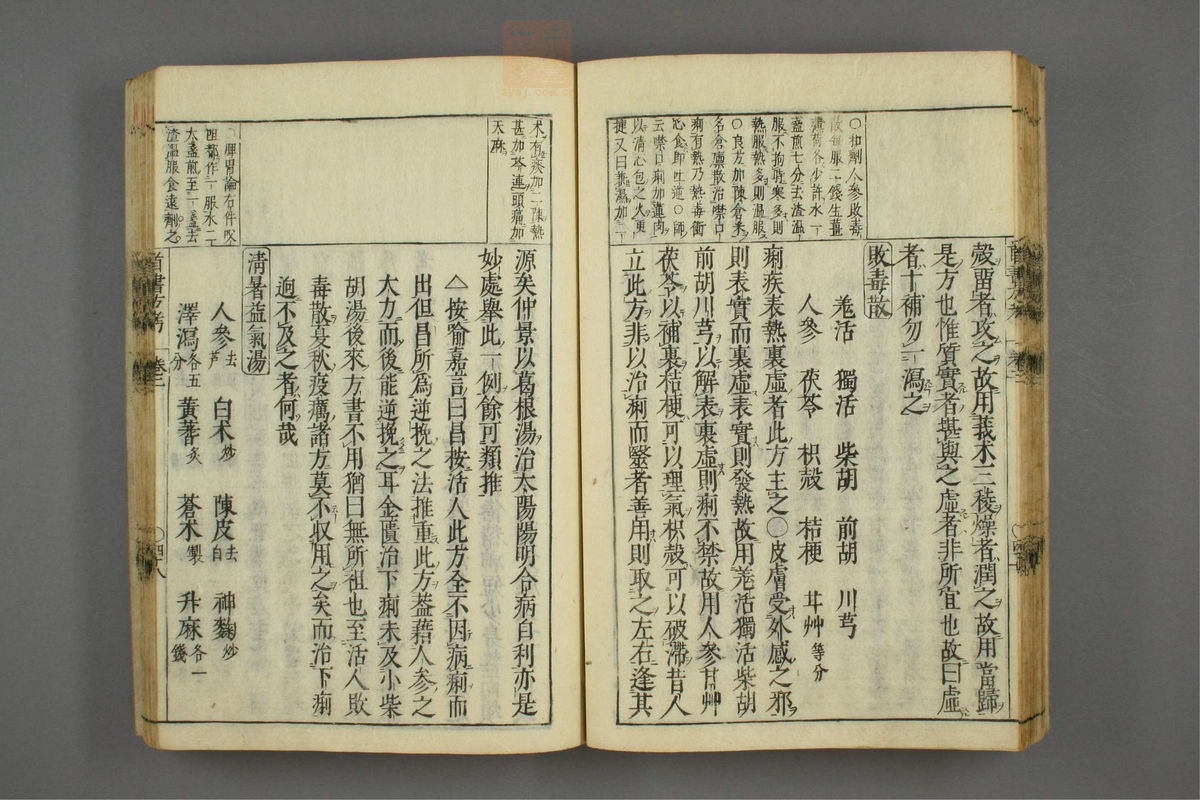 ○和劑人參敗毒
散每服二錢生薑
薄荷各少許水一
盞煎七分去渣溫
服不拘時寒多則
熱服熱多則溫服
○良方加陳倉米
名倉廩散治噤口
痢有熱乃熱毒衝
心食即吐逆○師
云噤口痢加蓮肉
以清心包之火更
捷又曰兼濕加二
殼雷者攻之故用莪朮三稜燥者潤之故用當歸
是方也惟質實者堪與之虛者非所宜也故曰虛
者十補勿一瀉之
敗毒散
羌活 獨活 柴胡 前胡 川芎
人參 茯苓 枳殼 桔梗 甘艸等分
痢疾表熱裏虛者此方主之○皮膚受外感之邪
則表實而裏虛表實則發熱故用羌活獨活柴胡
前胡川芎以解表裏虛則痢不禁故用人參甘艸
茯苓以補裏桔梗可以理氣枳殼可以破滯昔人
立此方非以治痢而毉者善用則取之左右逢其
朮有痰加二陳熱
甚加芩連頭痛加
天麻
○脾胃論右件㕮
咀都作一服水二
大盞煎至一盞去
渣溫服食遠劑之
源矣仲景以葛根湯治太陽陽明合病自利亦是
妙處舉此一例餘可類推
△按喻嘉言曰昌按活人此方全不因病痢而
出但昌所爲逆挽之法推重此方葢藉人參之
大力而後能逆挽之耳金匱治下痢未及小柴
胡湯後來方書不用猶曰無所祖也至活人敗
毒散夏秋疫癘諸方莫不収用之矣而治下痢
迥不及之者何哉
清暑益氣湯
人參去芦 白朮炒 陳皮去白 神麴炒
澤瀉各五分 黃蓍炙 蒼朮製 升麻各一錢
首書方考 卷二
四十八